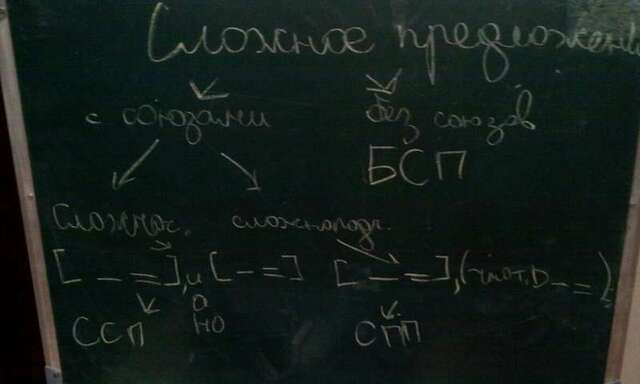 Сложное предложени
с союзами без союзов
БСП
сложносоч. сложноподч.
[ _ = ], и [ _ = ] [ _ = ], (что _ = ).
а
но
ССП СПП